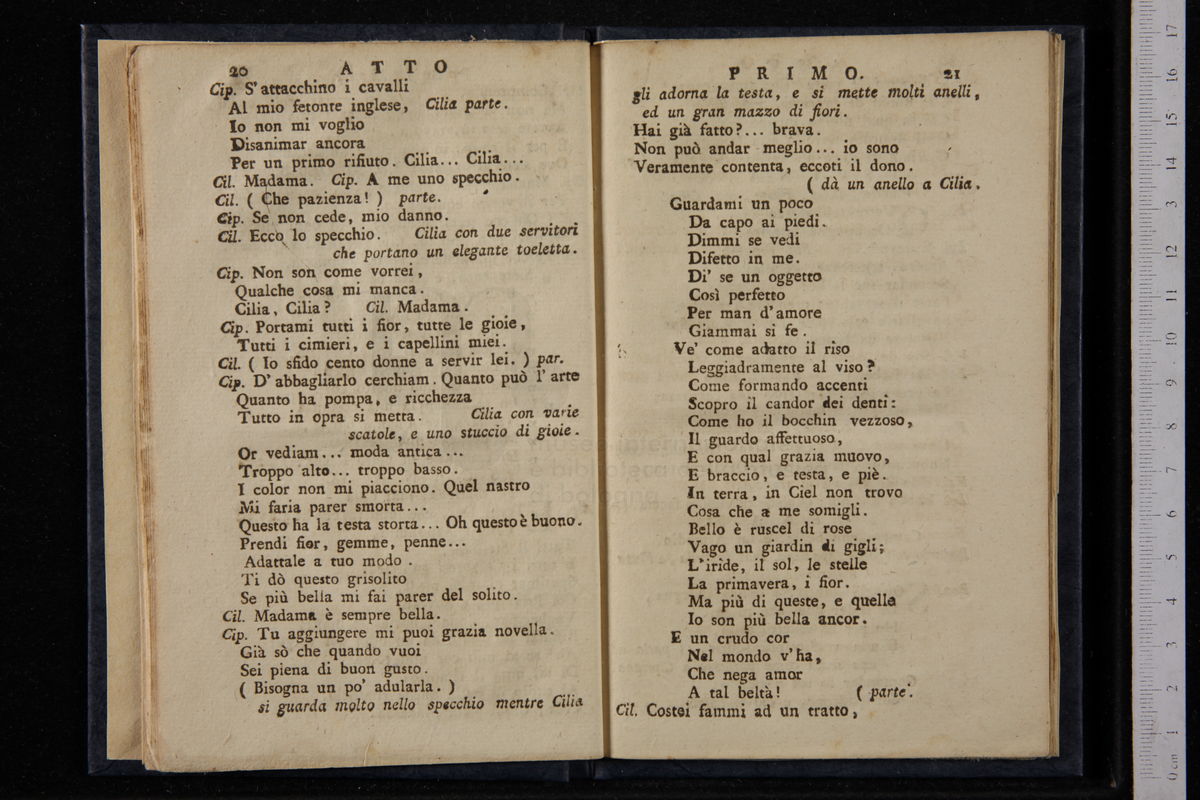 20 ATTO
Cip. S'attacchino i cavalli
Al mio fetonte inglese, Cilia parte.
Io non mi voglio
Disanimar ancora
Per un primo rifiuto. Cilia... Cilia...
Cil. Madama. Cip. A me uno specchio.
Cil. ( Che pazienza! ) parte.
Cip. Se non cede, mio danno.
Cil. Ecco lo specchio. Cilia con due servitori
che portano un elegante toeletta.
Cip. Non son come vorrei,
Qualche cosa mi manca.
Cilia, Cilia? Cil. Madama.
Cip. Portami tutti i fior, tutte le gioie,
Tutti i cimieri, e i capellini miei.
Cil. ( Io sfido cento donne a servir lei. ) par.
Cip. D'abbagliarlo cerchiam. Quanto può l'arte
Quanto ha pompa, e ricchezza
Tutto in opra si metta. Cilia con varie
scatole, e uno stuccio di gioie.
Or vediam... moda antica...
Troppo alto... troppo basso.
I color non mi piacciono. Quel nastro
Mi faria parer smorta...
Questo ha la testa storta... Oh questo è buono.
Prendi fior, gemme, penne...
Adattale a tuo modo.
Ti dò questo grisolito
Se più bella mi fai parer del solito.
Cil. Madama è sempre bella.
Cip. Tu aggiungere mi puoi grazia novella.
Già sò che quando vuoi
Sei piena di buon gusto.
( Bisogna un po' adularla. )
si guarda molto nello specchio mentre Cilia
PRIMO. 21
gli adorna la testa, e si mette molti anelli,
ed un gran mazzo di fiori.
Hai già fatto?... brava.
Non può andar meglio... io sono
Veramente contenta, eccoti il dono.
( dà un anello a Cilia.
Guardami un poco
Da capo ai piedi.
Dimmi se vedi
Difetto in me.
Di' se un oggetto
Così perfetto
Per man d'amore
Giammai si fe.
Ve' come adatto il riso
Leggiadramente al viso?
Come formando accenti
Scopro il candor dei denti:
Come ho il bocchin vezzoso,
Il guardo affettuoso,
E con qual grazia muovo,
E braccio, e testa, e piè.
In terra, in Ciel non trovo
Cosa che a me somigli.
Bello è ruscel di rose
Vago un giardin di gigli;
L'iride, il sol, le stelle
La primavera, i fior.
Ma più di queste, e quelle
Io son più bella ancor.
E un crudo cor
Nel mondo v'ha,
Che nega amor
A tal beltà! ( parte.
Cil. Costei fammi ad un tratto,